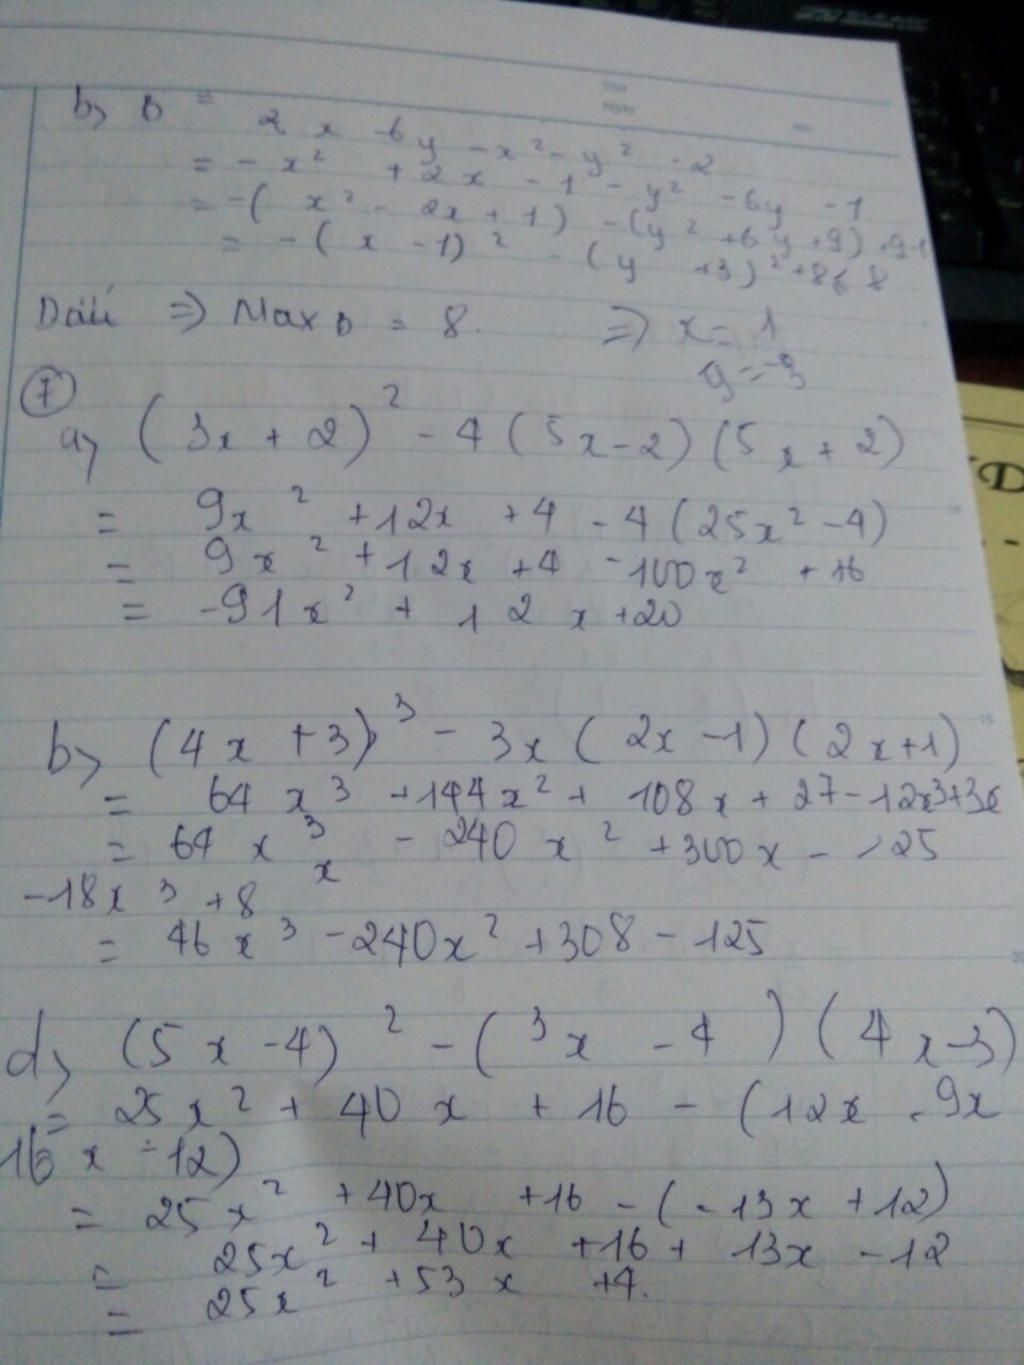 Thứ
Ngày
b) B = 2x - 6y - x² - y² - 2
= - x² + 2x - 1 - y² - 6y - 1
= -( x² - 2x + 1) - (y² + 6y + 9) + 9 - 1
= - ( x - 1)² - (y + 3)² + 8
Dấu ⇒ Max B = 8. ⇒ x = 1
y = -3
7
a) (3x + 2)² - 4 (5x - 2) (5x + 2)
= 9x² + 12x + 4 - 4 (25x² - 4)
= 9x² + 12x + 4 - 100x² + 16
= -91x² + 12x + 20
b) (4x + 3)³ - 3x ( 2x - 1) ( 2x + 1)
= 64x³ + 144x² + 108x + 27 - 12x³ + 3x
= 64x³ - 240x² + 300x - 125
x
-18x³ + 8
= 46x³ - 240x² + 308 - 125
d) (5x - 4)² - (3x - 4) (4x - 3)
= 25x² + 40x + 16 - (12x - 9x
16x - 12)
= 25x² + 40x + 16 - ( - 13x + 12)
= 25x² + 40x + 16 + 13x - 12
= 25x² + 53x + 4.
D